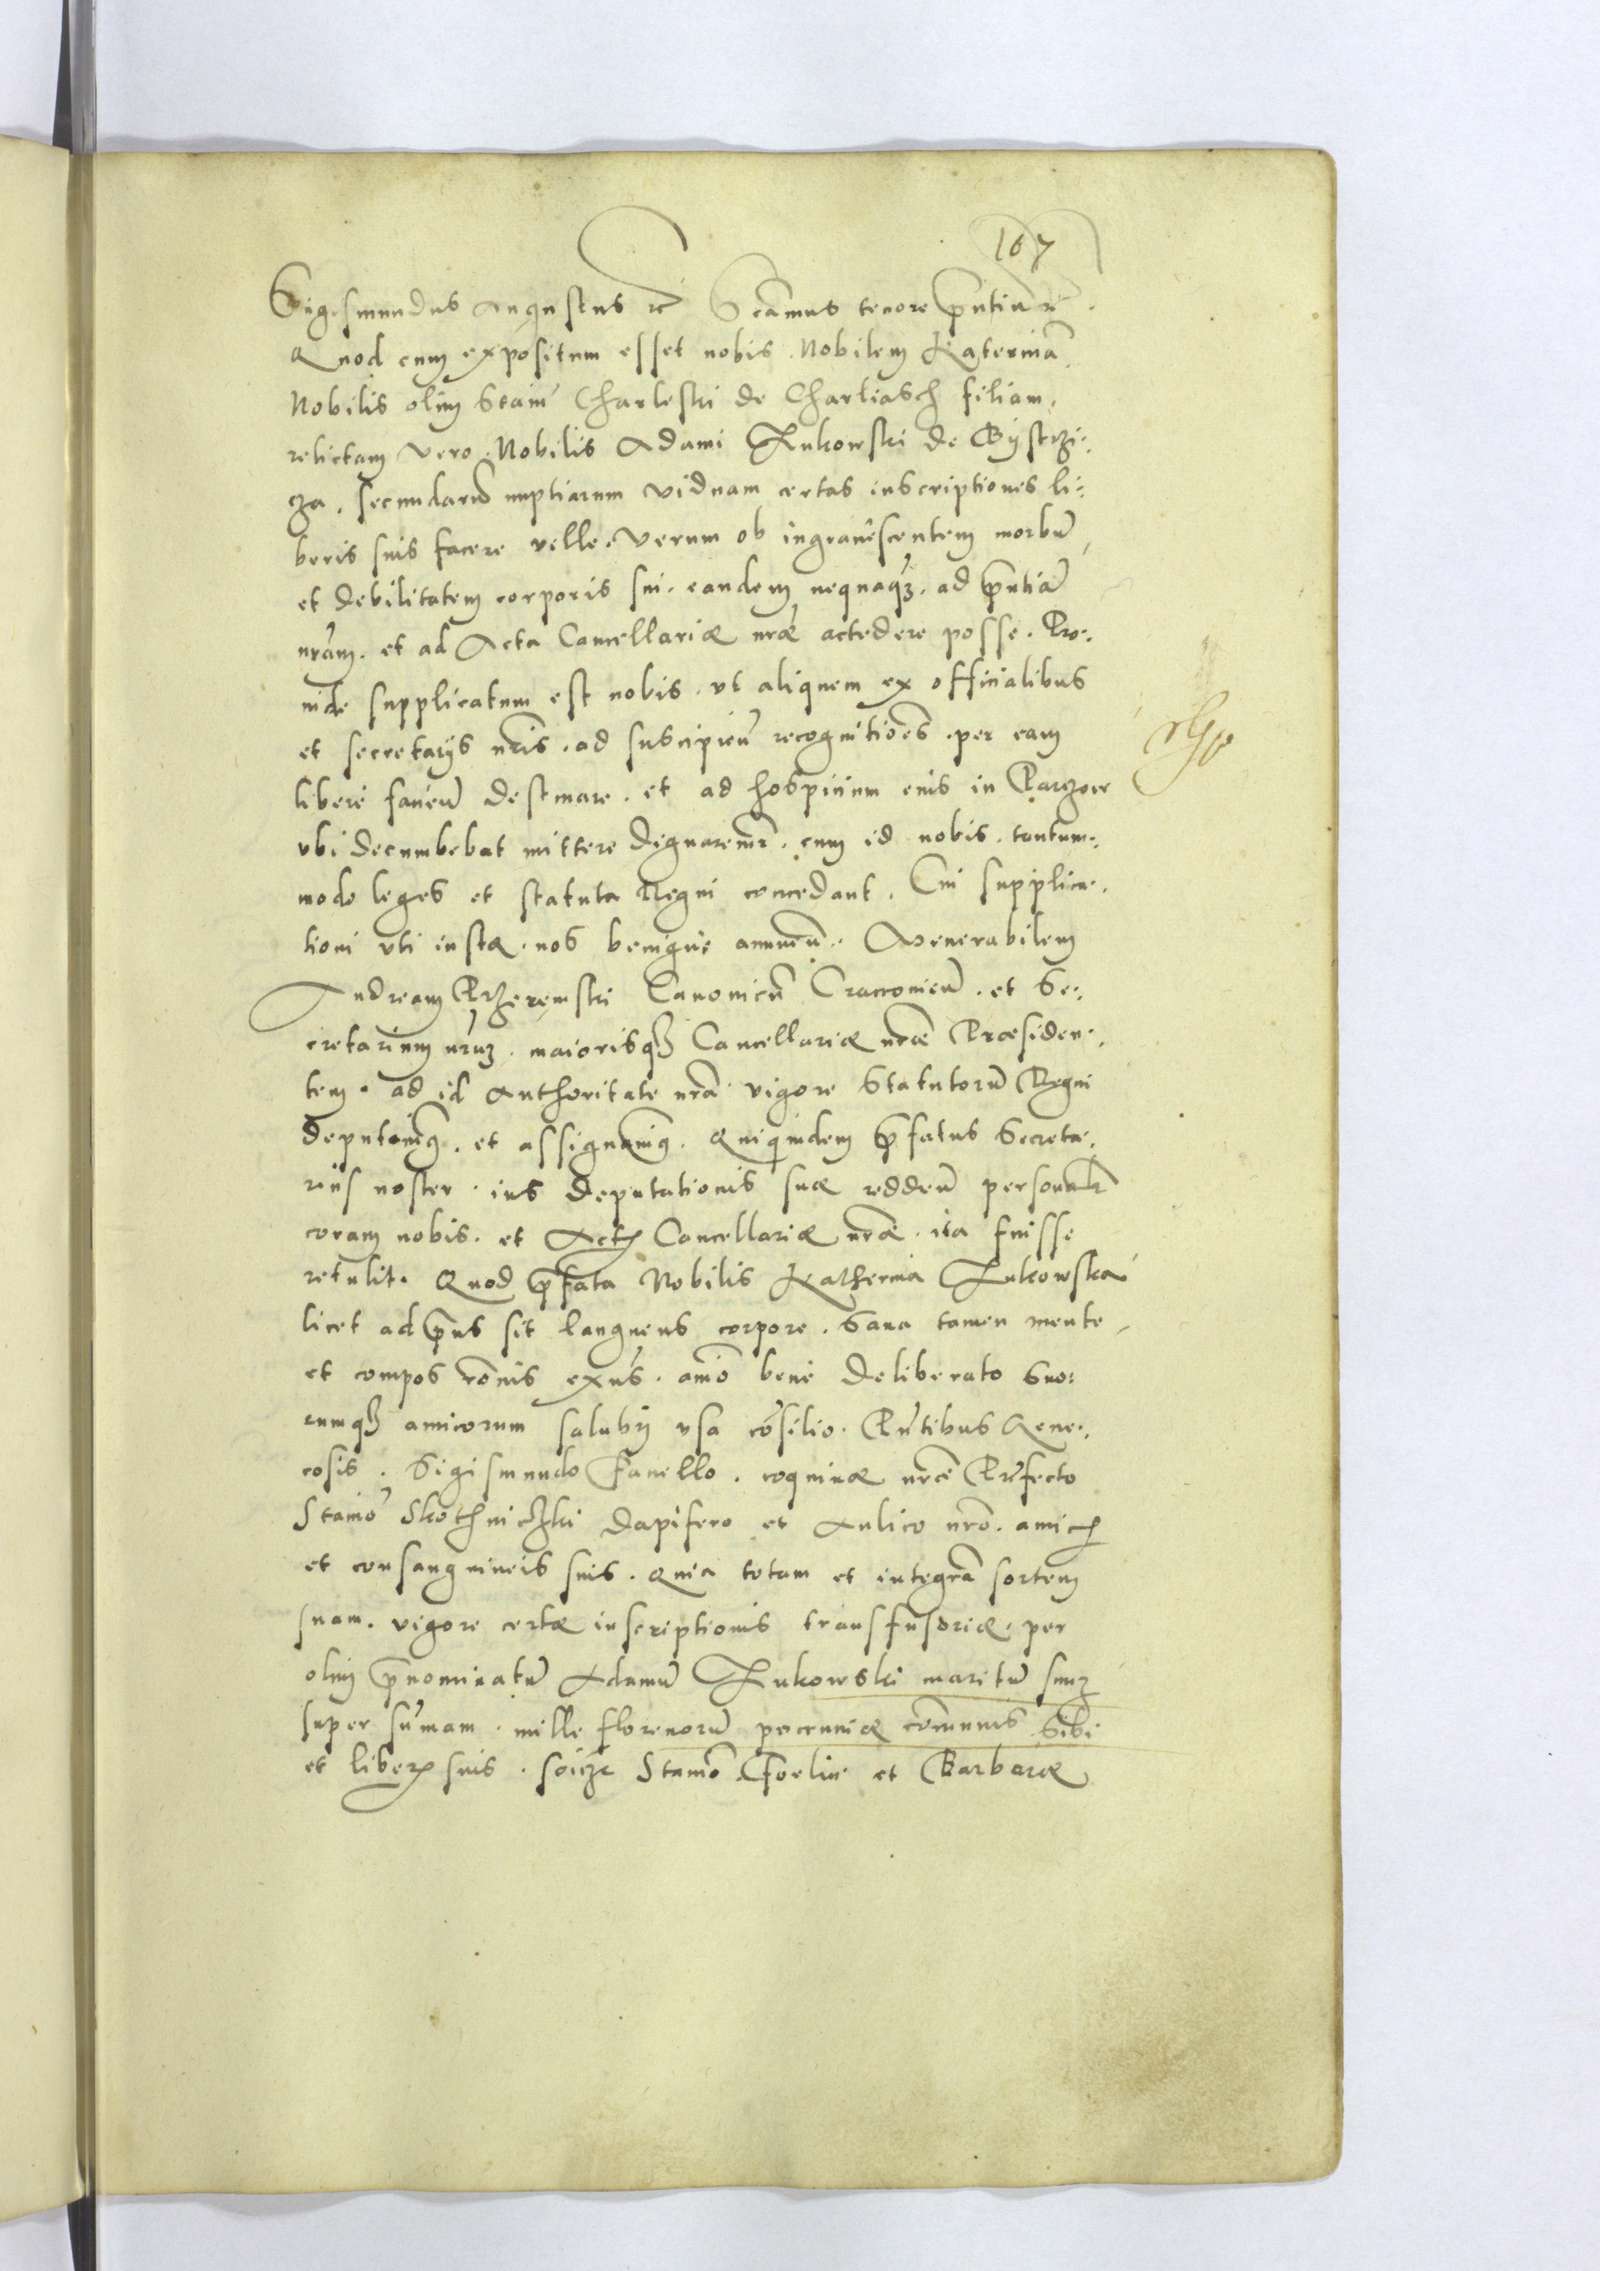 107
Sigismundus Augustus rc̃ Scāmus tenore p̄ntiū rc̃.
Quod cum expositum esset nobis. Nobilem Katerinā
Nobilis olim Stanī Charleski de Charliasch filiam,
relictam vero. Nobilis Adami Zukowski de Bÿstrzi-
cza, secundarū nuptiarum viduam certas inscriptiones li-
beris suis facere velle. Verum ob ingrauescentem morbū
et debilitatem corporis sui. eandem nequaq̃. ad p̄ntiā
nrām. et ad Acta Cancellariæ nrǣ accedere posse. Pro-
inde supplicatum est nobis. vt aliquem ex officialibus
et secretarijs nrīs. ad suscipieñ recognitiōes. per eam
libere facieñ destinare. et ad hospicium eius in Parczow
vbi decumbebat mittere dignaremr̃. cum id nobis. tantum-
modo leges et statuta Regni concedant. Cui supplica-
tioni vti iustæ. nos benigne annueñ. Venerabilem
Andream Przerembski Canonicū Cracouieñ. et Se-
cretarium nrūm. maiorisq̃ Cancellariæ nrǣ Præsiden-
tem. ad id authoritate nrā vigore Statutorū Regni
deputauimꝰ. et assignauimꝰ. Quiquidem p̄fatus Secreta-
rius noster. ius deputationis suæ reddeñ personalr̃
coram nobis. et Actis Cancellariæ nrǣ. ita fuisse
retulit. Quod p̄fata Nobilis Katherina Zukowska
licet ad p̄ns sit languens corpore. sana tamen mente
et compos rōnis exñs. aīo bene deliberato suo-
rumq̃ amicorum salubri vsa cōsilio. Pn̄tibus Gene-
rosis. Sigismundo Fanello. coquinæ nrǣ Præfecto
Stanīo Skothniczki dapifero et Aulico nrō. amicis
et consanguineis suis. Quia totam et integrā sortem
suam. vigore certæ inscriptionis transfusoriæ. per
olim p̄nominatū Adamū Zukowski maritū suum
super sūmam. mille florenorū pecuniæ cōmunis sibi
et liberis suis. scilicz Stanīo Foelici et Barbaræ